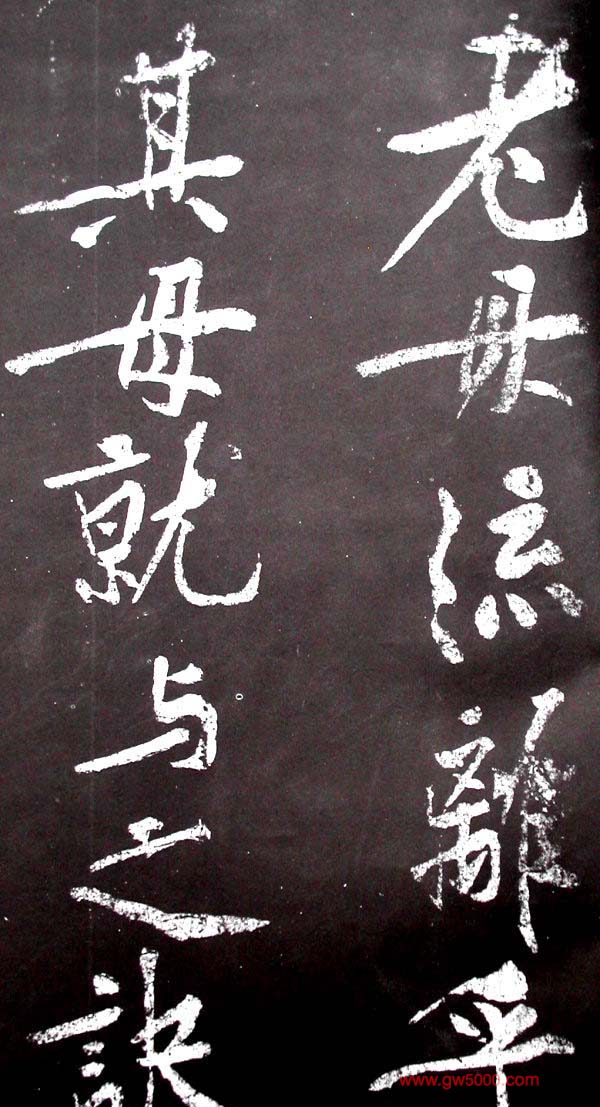 老母流離乎
其母就与之訣
www.gw5000.com